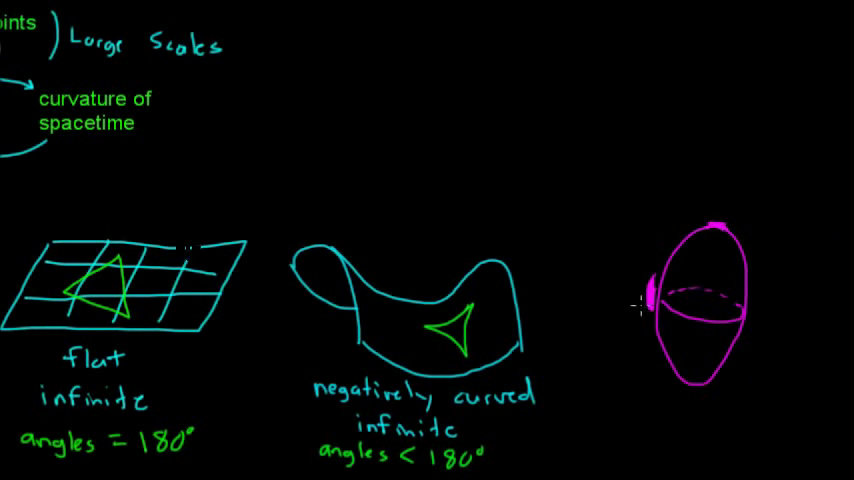 ) Large Scales
curvature of
spacetime
flat
infinite
angles = 180°
negatively curved
infinite
angles < 180°